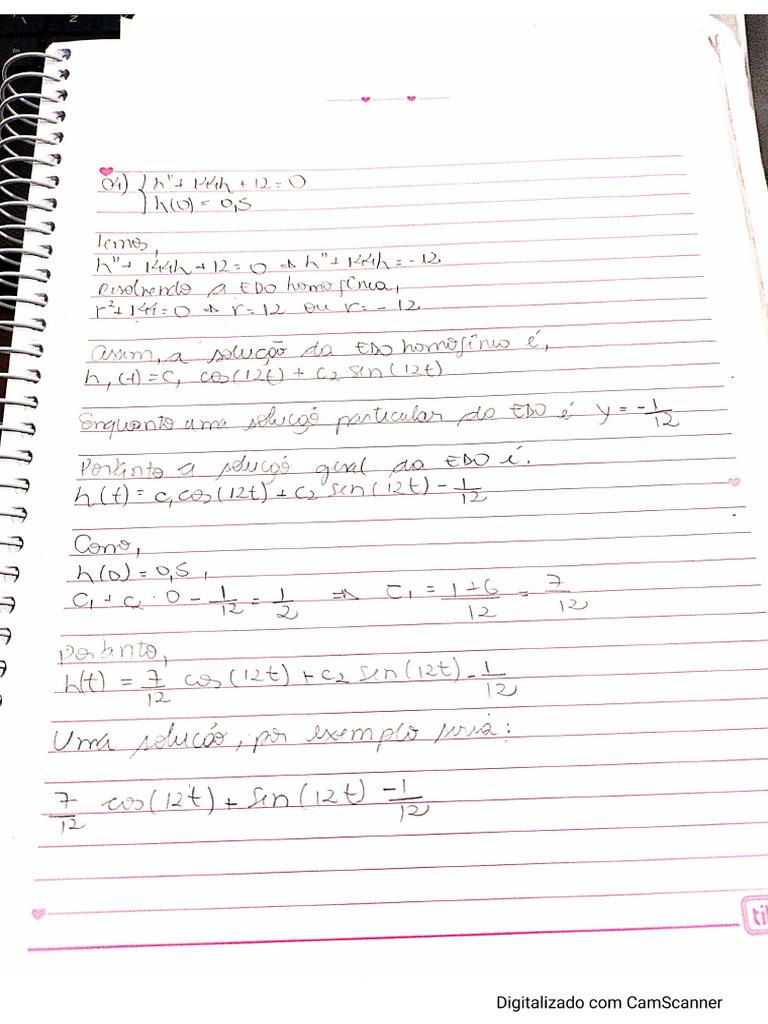 01) { h" + 144h + 12 = 0
h(0) = 0,5
Temos,
h" + 144h + 12 = 0 ⇒ h" + 144h = -12
Resolvendo a EDO homogênea,
r² + 144 = 0 ⇒ r = 12 ou r = -12
Assim, a solução da EDO homogênio é,
h₁(t) = C₁ cos(12t) + C₂ sen(12t)
Enquanto uma solução particular da EDO é y = -1/12
Portanto a solução geral da EDO é.
h(t) = c₁cos(12t) + c₂ sen(12t) - 1/12
Como,
h(0) = 0,5,
C₁ + c₂ · 0 - 1/12 = 1/2 ⇒ C₁ = 1+6/12 = 7/12
Portanto,
h(t) = 7/12 cos(12t) + c₂ sen(12t) - 1/12
Uma solução, por exemplo seria:
7/12 cos(12t) + sen(12t) - 1/12
Digitalizado com CamScanner